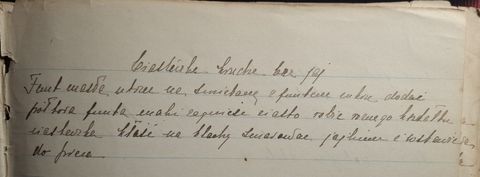 Ciasteczka kruche bez jaj
Funt masła utrzeć na śmietanę z funtem cukru dodać
półtora funta mąki zagnieść ciasto robić różnego kształtu
ciasteczka kłaść na blachy smarować jajkiem i wstawić
do pieca